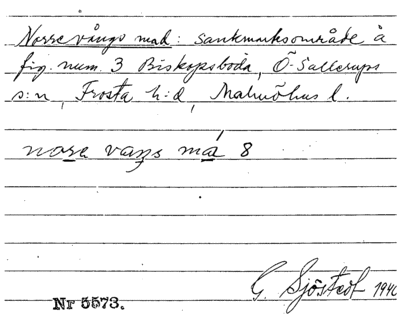 Norrevångs mad: sankmarksområde å
fig. num. 3 Biskopsboda, Ö. Sallerups
s:n, Frosta h:d, Malmöhus l.
nore vangs má 8
G. Sjöstedt 1940
Nr 5573.